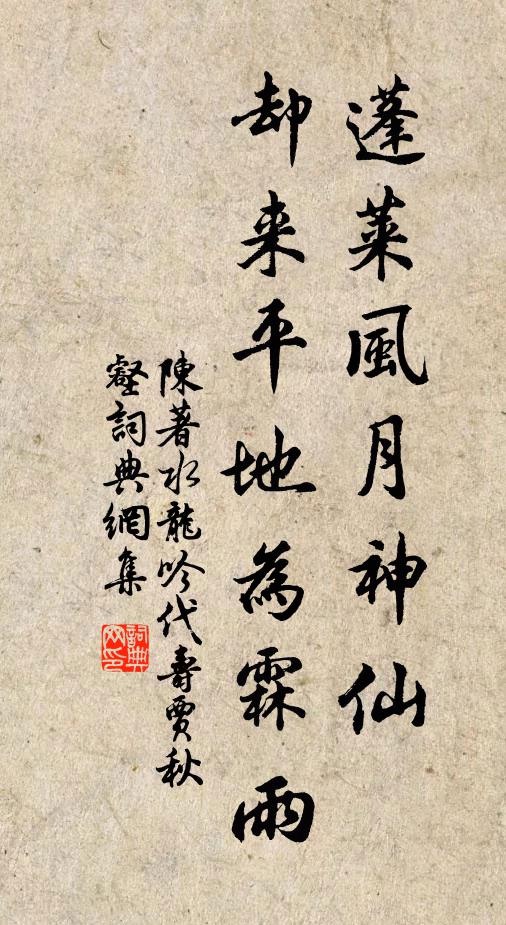 蓬萊風月神仙
却来平地為霖雨
陳著水龍吟代壽賈秋
壑詞典網集
詞典
网印